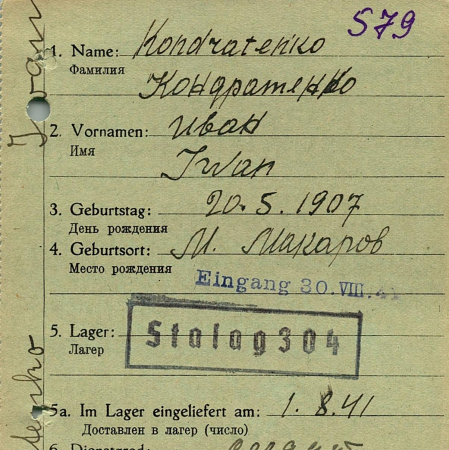 579
1. Name: Kondratenko
Фамилия
Кондратенко
2. Vornamen: Иван
Имя
Iwan
3. Geburtstag: 20.5.1907
День рождения
4. Geburtsort: М. Макаров
Место рождения
Eingang 30.VIII.41
5. Lager: Stalag 304
Лагер
5a. Im Lager eingeliefert am: 1.8.41
Доставлен в лагер (число)